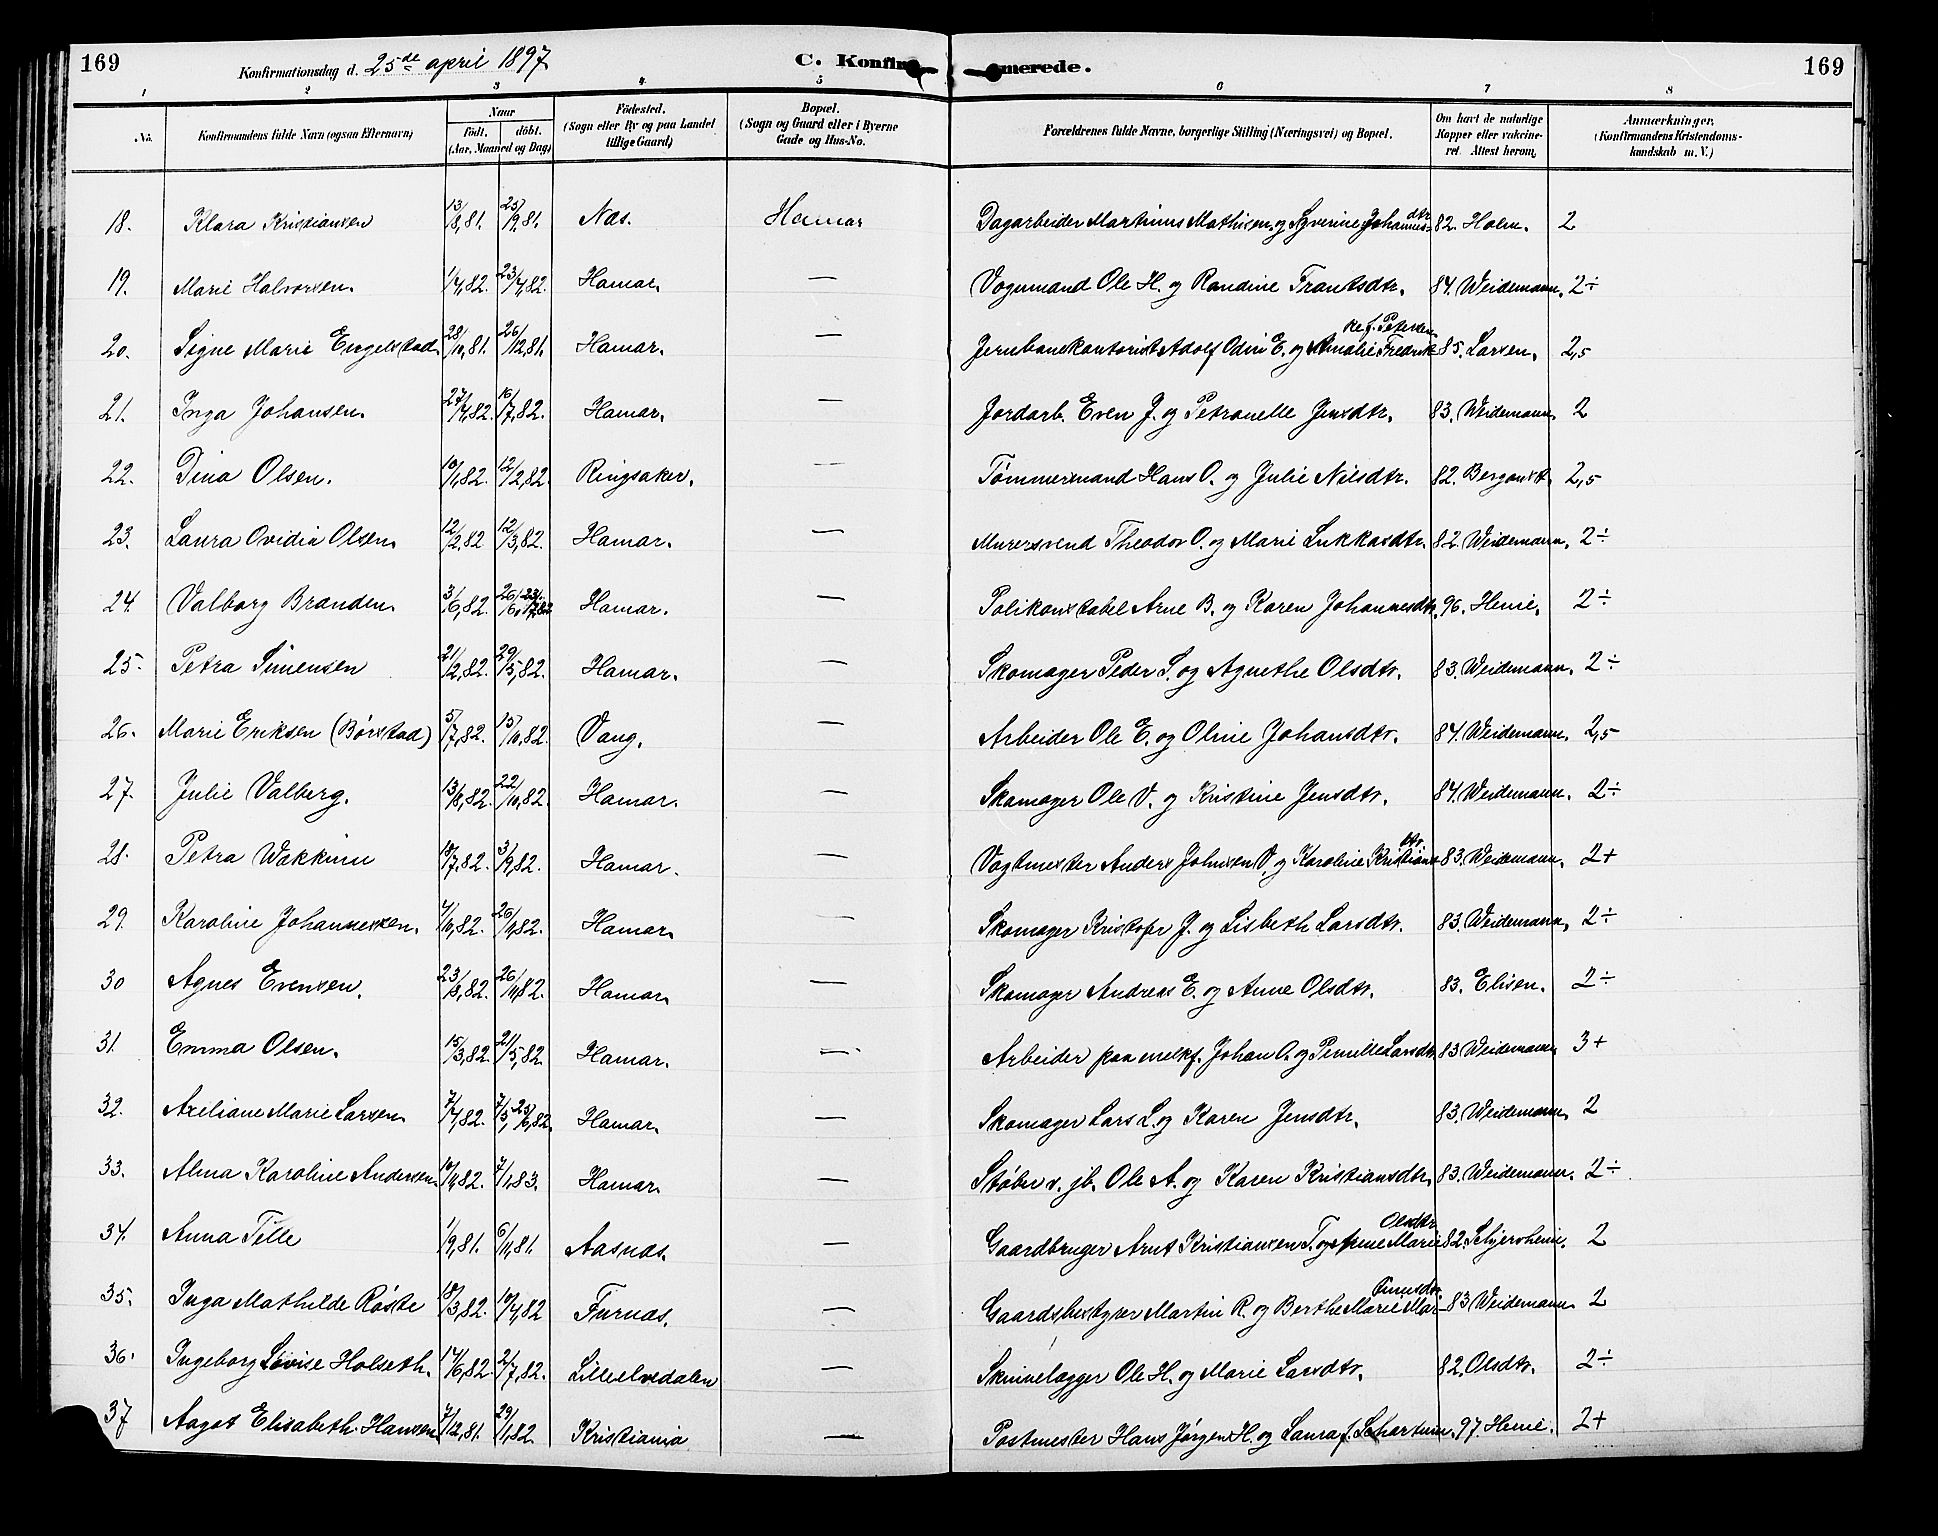 169
Konfirmationsdag d. 25de april 1897
C. Konfir merede.
169
1 2 3 4 5 6 7 8
No.
Konfirmandens fulde Navn (ogsaa Efternavn)
Naar
født. døbt.
(Aar, Maaned og Dag)
Fødested.
(Sogn eller By og paa Landet
tillige Gaard)
Bopæl.
(Sogn og Gaard eller i Byerne
Gade og Hus-No.
Forældrenes fulde Navne, borgerlige Stilling (Næringsvei) og Bopæl.
Om havt de naturlige
Kopper eller vakcine-
ret. Attest herom.
Anmærkninger.
(Konfirmandens Kristendoms-
kundskab m. V.)
18. Klara Kristiansen 13/8,81. 25/9,81. Næs. Hamar Dagarbeider Martinus Mathisen og Syverine Johannesdtr 82. Holm. 2
19. Marie Halvorsen. 1/4,82. 23/4,82. Hamar. — Vognmand Ole H. og Randine Frantsdtr. 84. Weidemann. 2÷
20. Signe Marie Engelstad 28/10,81. 26/12,81. Hamar. — Jernbanekontorist Adolf Odin E. og Amalie Fredrikke f. Petersen 85. Larsen. 2,5
21. Inga Johansen. 27/4,82. 16/7,82. Hamar. — Jordarb. Even J. og Petronelle Jensdtr. 83. Weidemann. 2
22. Dina Olsen. 10/1,82. 12/2,82. Ringsaker. — Tømmermand Hans O. og Julie Nilsdtr. 82. 2,5
23. Laura Ovidia Olsen. 12/2,82 12/3,82. Hamar. — Murersvend Theodor O. og Marie Lukkasdtr. 82. Weidemann. 2÷
24. Valborg Branden. 3/6,82. Hamar. — Polikonstabel Arne B. og Karen Johannesdtr. 96. Henie. 2÷
25. Petra Simensen 21/2,82. 29/5,82. Hamar. — Skomager Peder S. og Agnethe Olsdtr. 83. Weidemann. 2÷
26. Marie Eriksen (Børstad) 5/7,82. 15/10,82. Vang. — Arbeider Ole E. og Oline Johansdtr. 84. Weidemann. 2,5
27. Julie Valberg. 13/8,82. 22/10,82. Hamar. — Skomager Ole V. og Kristine Jensdtr. 84. Weidemann. 2÷
28. Petra Wakkinn 18/7,82. 3/9,82. Hamar. — Vagtmester Anders Johnsen V. og Karoline Kristiansdtr 83. Weidemann. 2+
29. Karoline Johannessen. 4/10,82. 26/11,82. Hamar. — Skomager Kristofer J. og Lisbeth Larsdtr. 83. Weidemann. 2÷
30 Agnes Evensen. 23/8,82. 26/11,82. Hamar. — Skomager Andreas E. og Anne Olsdtr. 83. Elisen. 2÷
31. Emma Olsen. 15/3,82. 21/5,82. Hamar. — Arbeider paa melkf. Johan O. og Pernille Larsdtr. 83 Weidemann 3+
32. Axeliane Marie Larsen. 7/4,82. 7/5, 25/6,82. Hamar. — Skomager Lars L. og Karen Jensdtr. 83. Weidemann. 2
33. Alma Karoline Andersen. 82. 7/1,83. Hamar. — Støber v. jb. Ole A. og Karen Kristiansdtr. 83. Weidemann. 2÷
34. Anna Tille 1/9,81. 6/11,81. Aasnæs. — Gaardbruger Arnt Kristiansen T. og Anne Marie Olsdtr 82. 2
35. Inga Mathilde Røste 18/3,82. 10/4,82 Furnæs. — Gaardsbestyrer Martin R. og Berthe Marie Martinusdtr. 83 Weidemann. 2
36. Ingeborg Lovise Holseth. 14/6,82. 2/7,82. Lilleelvedalen — Skinnelægger Ole H. og Marie Larsdtr. 82. Olsdtr. 2÷
37 Aagot Elisabeth Hansen 7/12,81. 29/1,82. Kristiania — Postmester Hans Jørgen H. og Laura f. Schartum. 97. Henie. 2+